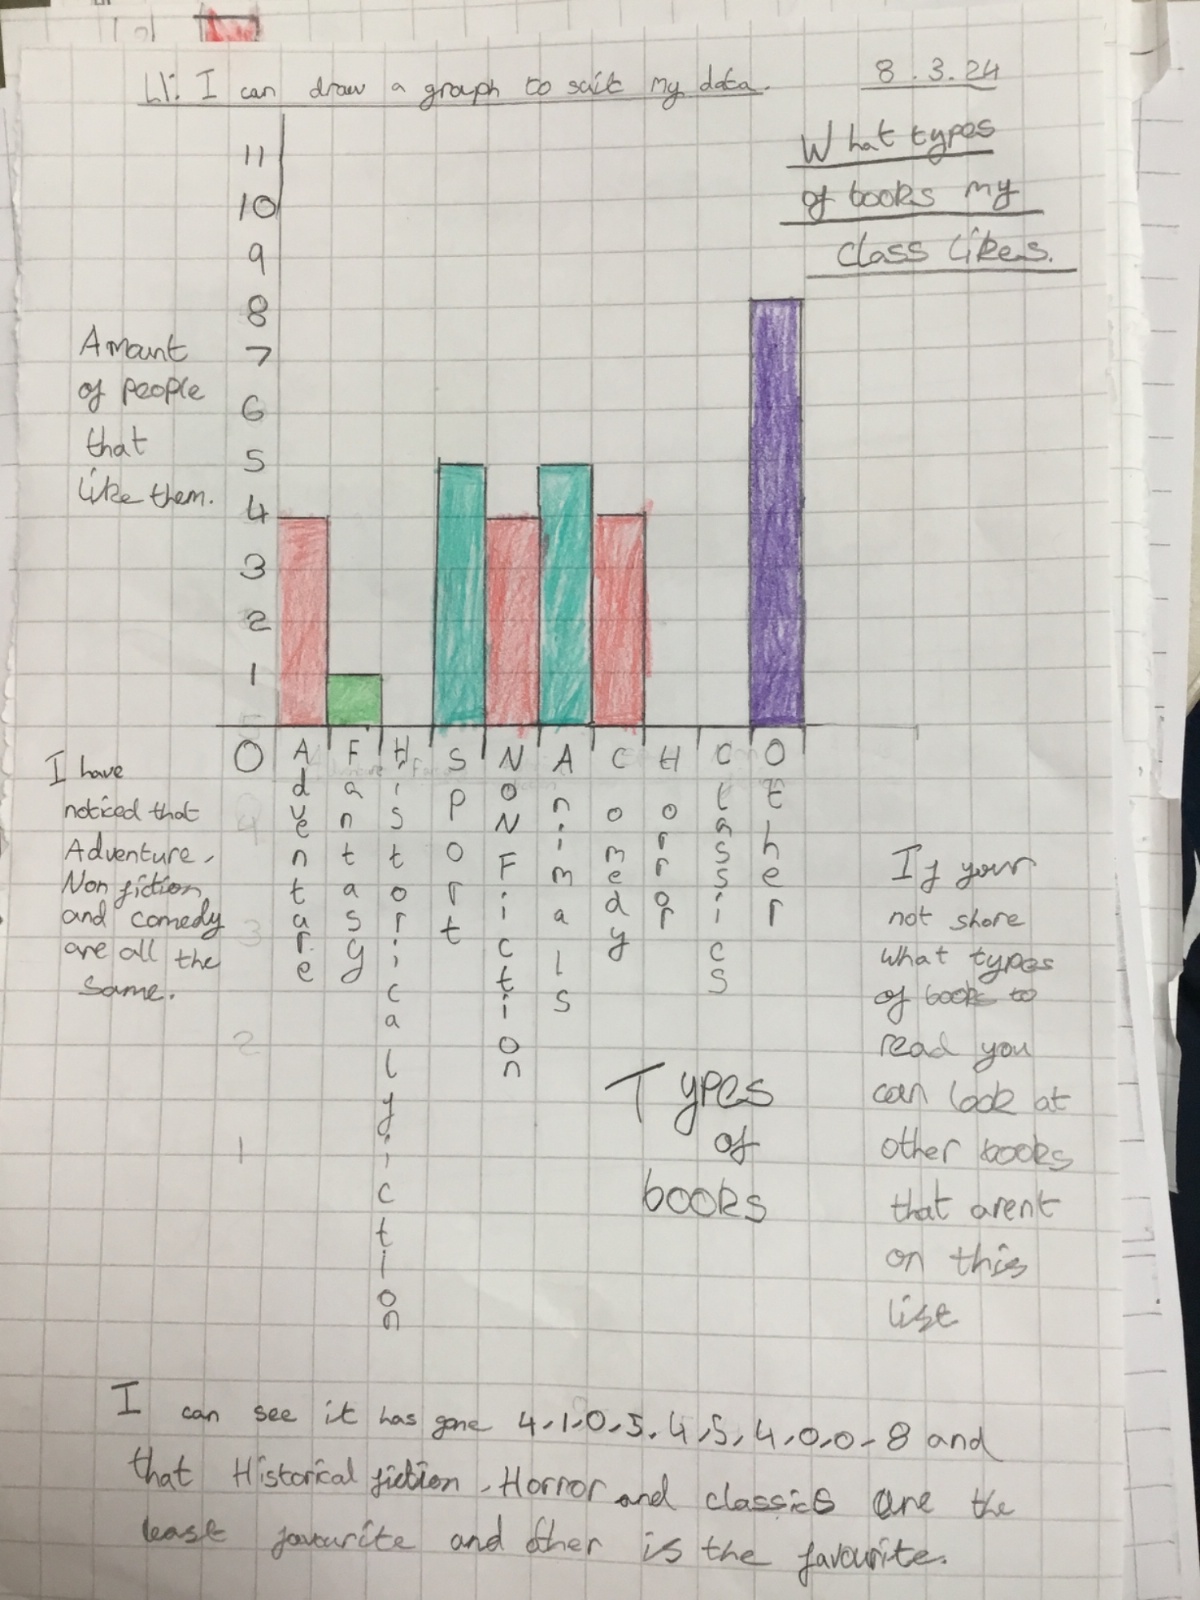 LI: I can draw a graph to suit my data.
8.3.24
What types
of books my
class likes.
11
10
9
8
7
6
5
4
3
2
1
0
Amount
of people
that
like them.
Adventure
Fantasy
Historical fiction
Sport
NoN Fiction
Animals
Comedy
Horror
Classics
Other
Types
of
books
I have
noticed that
Adventure,
Non fiction,
and comedy
are all the
same.
If your
not shore
what types
of books to
read you
can look at
other books
that arent
on this
list
I can see it has gone 4,1,0,5,4,5,4,0,0,8 and
that Historical fiction, Horror and classics are the
least favourite and other is the favourite.